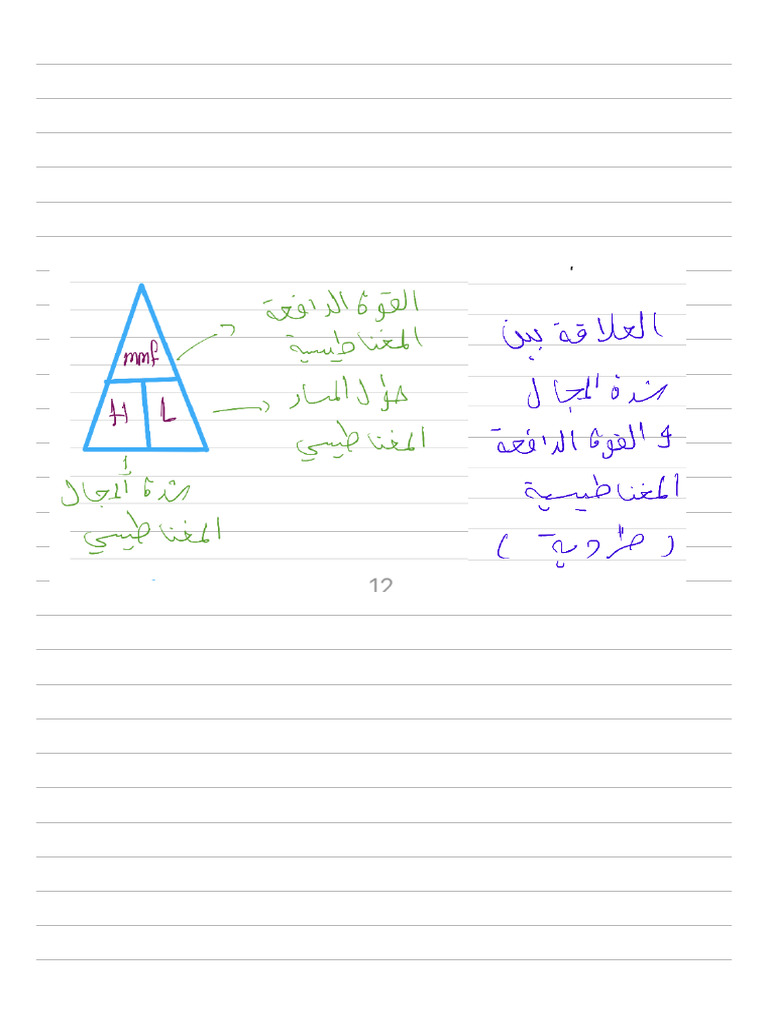 العلاقة بين
شدة المجال
و القوة الدافعة
المغناطيسية
( طردية )
القوة الدافعة
المغناطيسية
طول المسار
المغناطيسي
mmf
H
L
شدة المجال
المغناطيسي
12